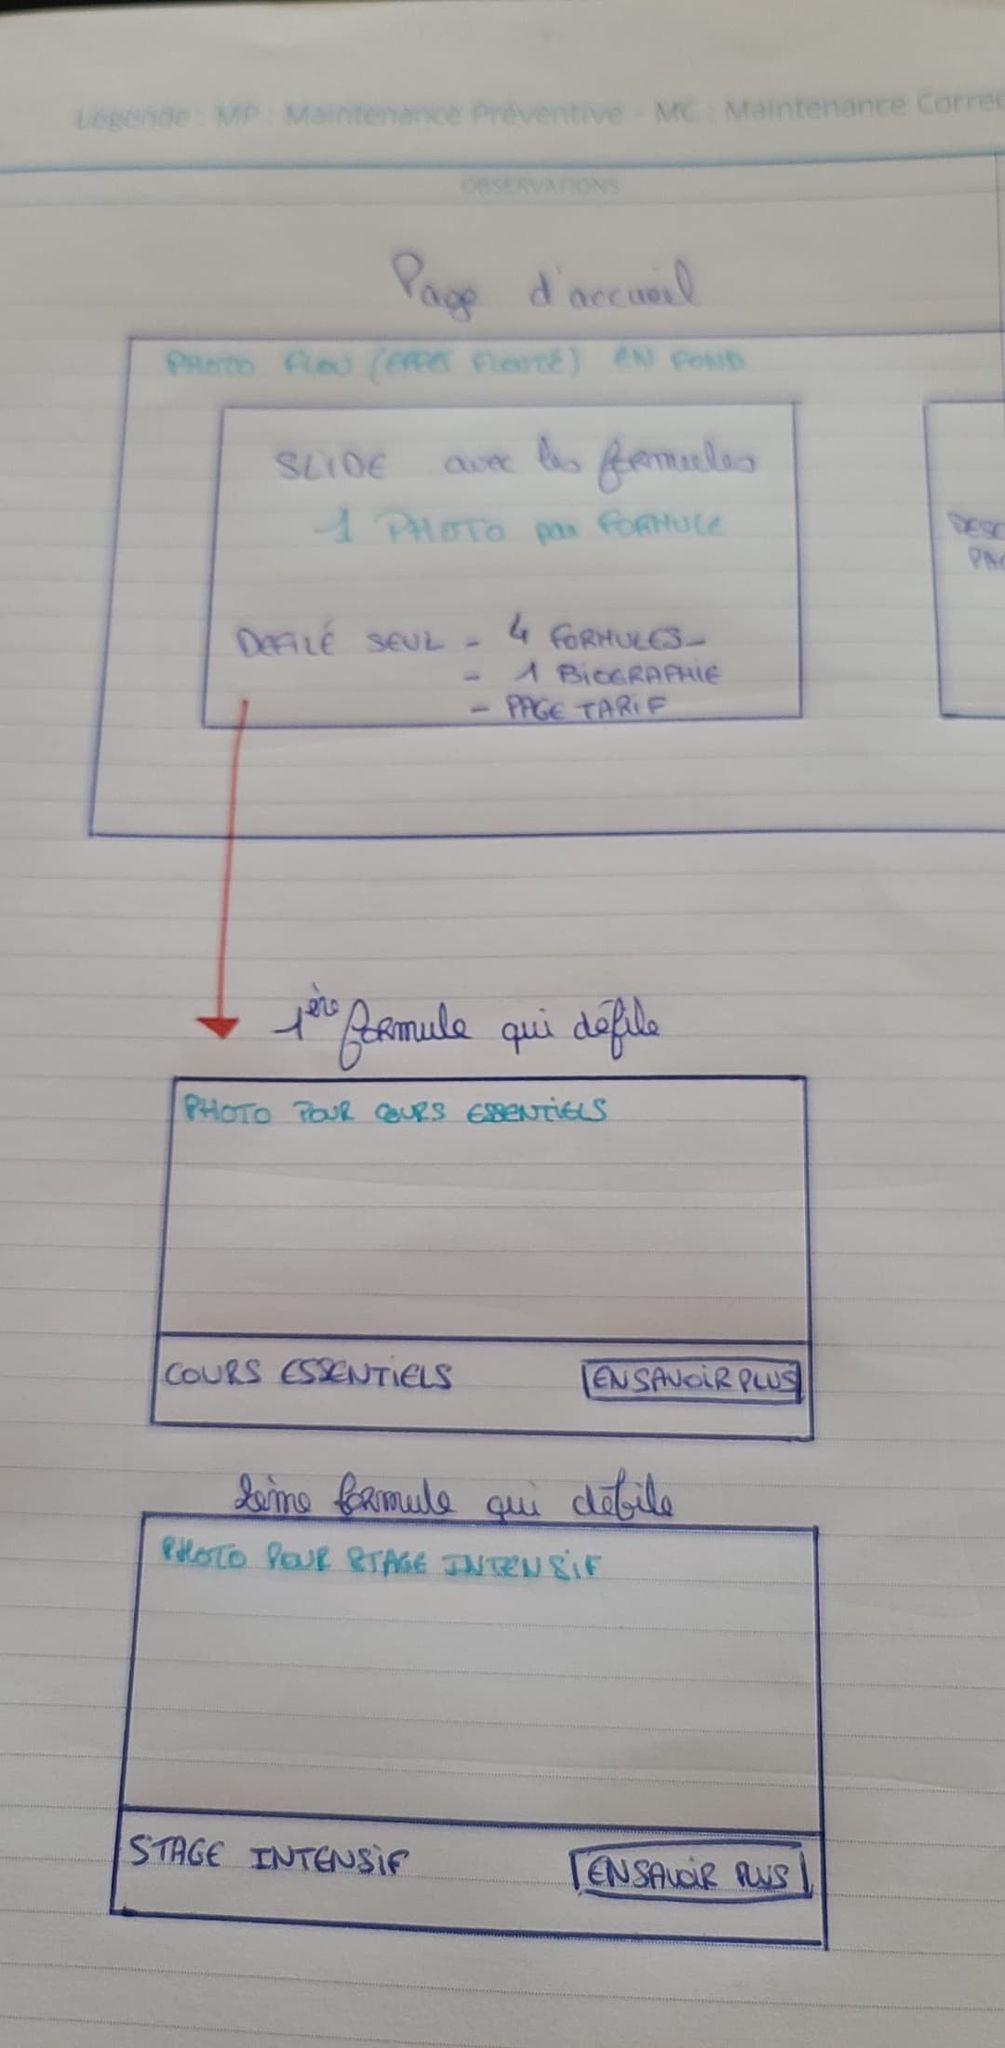 Légende : MP : Maintenance Préventive - MC : Maintenance Correc
OBSERVATIONS
Page d'accueil
PHOTO FLOU (EFFET FLOUTÉ) EN FOND
SLIDE avec les formules
1 PHOTO par FORMULE
DESC
PAG
DEFILÉ SEUL - 4 FORMULES -
- 1 BIOGRAPHIE
- PAGE TARIF
1ère formule qui défile
PHOTO POUR COURS ESSENTIELS
COURS ESSENTIELS
EN SAVOIR PLUS
2ème formule qui défile
PHOTO POUR STAGE INTENSIF
STAGE INTENSIF
EN SAVOIR PLUS